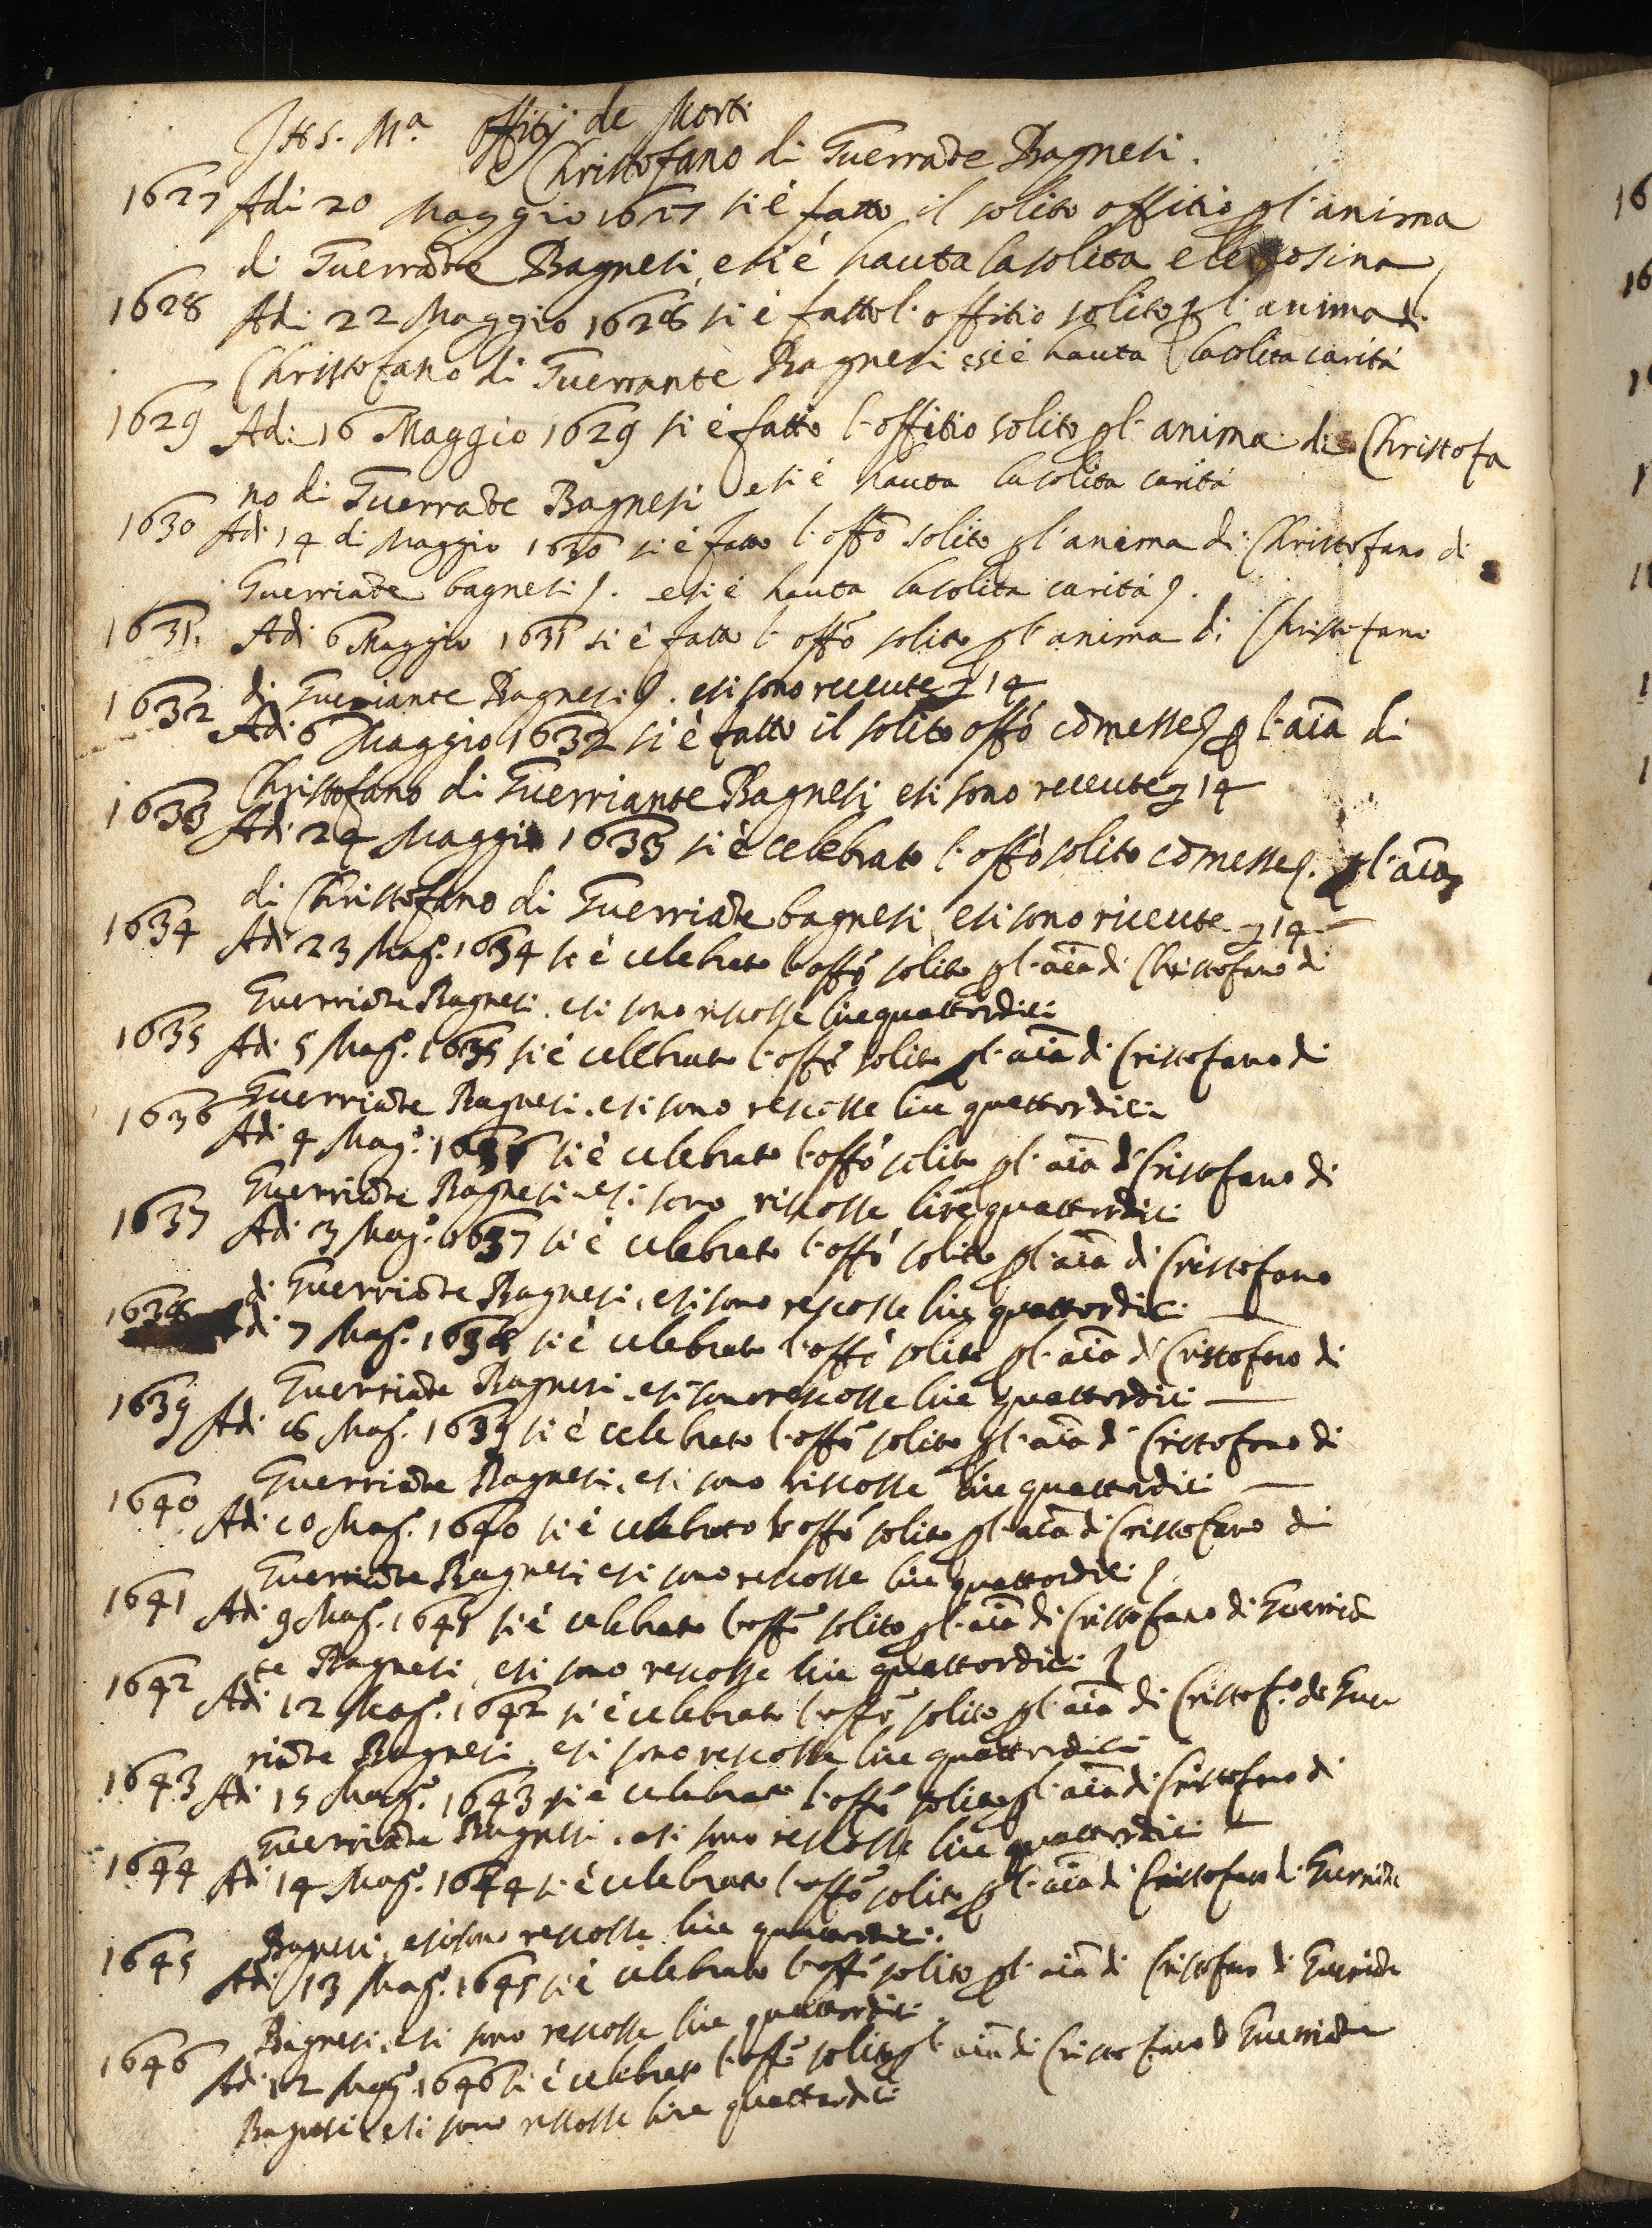 JHS. Mª. Offitij de Morti
Christofano di Guerrāte Bagnesi.
1627 Adi 20 Maggio 1627 si è fatto il solito offitio p l'anima
di Guerrāte Bagnesi e si è hauta la solita elemosina
1628 Adi 22 Maggio 1628 si è fatto l'offitio solito p l'anima di
Christofano di Guerrante Bagnesi e si è hauta la solita carità
1629 Adi 16 Maggio 1629 si è fatto l'offitio solito p l'anima di Christofa
no di Guerrāte Bagnesi e si è hauta la solita carità
1630 Adi 14 di Maggio 1630 si è fatto l'offō solito p l'anima di Christofano di
Guerriāte bagnesi. e si è hauta la solita carità.
1631. Adi 6 Maggio 1631 si è fatto l'offō solito p l'anima di Christofano
di Guerriante Bagnesi. e si sono receute 14
1632 Adi 6 Maggio 1632 si è fatto il solito offō cō messe p l'aīa di
Christofano di Guerriante Bagnesi e si sono receute 14
1633 Adi 24 Maggio 1633 si è celebrato l'offō solito cō messe. p l'aīa
di Christofano di Guerriāte bagnesi e si sono riceute 14
1634 Adi 23 Magº. 1634 si è celebrato l'offō solito p l'aīa di Christofano di
Guerriāte Bagnesi. e si sono riscosse lire quattordici
1635 Adi 5 Magº. 1635 si è celebrato l'offō solito p l'aīa di Cristofano di
Guerriāte Bagnesi. e si sono rescosse lire quattordici
1636 Adi 4 Magº. 1636 si è celebrato l'offō solito p l'aīa di Cristofano di
Guerriāte Bagnesi e si sono riscosse lire quattordici
1637 Adi 3 Magº. 1637 si è celebrato l'offō solito p l'aīa di Cristofano
di Guerriāte Bagnesi, e si sono rescosse lire quattordici
1638 Adi 7 Magº. 1638 si è celebrato l'offō solito p l'aīa di Cristofano di
Guerriāte Bagnesi. e si sono rescosse lire quattordici
1639 Adi 16 Magº. 1639 si è celebrato l'offō solito p l'aīa di Cristofano di
Guerriāte Bagnesi. e si sono riscosse lire quattordici
1640 Adi 10 Magº. 1640 si è celebrato l'offō solito p l'aīa di Cristofano di
Guerriāte Bagnesi e si sono rescosse lire quattordici
1641 Adi 9 Magº. 1641 si è celebrato l'offō solito p l'aīa di Cristofano di Guerriā
te Bagnesi, e si sono rescosse lire quattordici
1642 Adi 12 Magº. 1642 si è celebrato l'offō solito p l'aīa di Cristofº. di Guer
riāte Bagnesi, e si sono rescosse lire quattordici
1643 Adi 15 Magº. 1643 si è celebrato l'offō solito p l'aīa di Cristofano di
Guerriāte Bagnesi. e si sono rescosse lire quattordici
1644 Adi 14 Magº. 1644 si è celebrato l'offō solito p l'aīa di Cristofano di Guerriāte
Bagnesi, e si sono rescosse lire quattordici.
1645 Adi 13 Magº. 1645 si è celebrato l'offō solito p l'aīa di Cristofano di Guerriāte
Bagnesi, e si sono rescosse lire quattordici
1646 Adi 12 Magº. 1646 si è celebrato l'offō solito p l'aīa di Cristofano di Guerriāte
Bagnesi e si sono rescosse lire quattordici